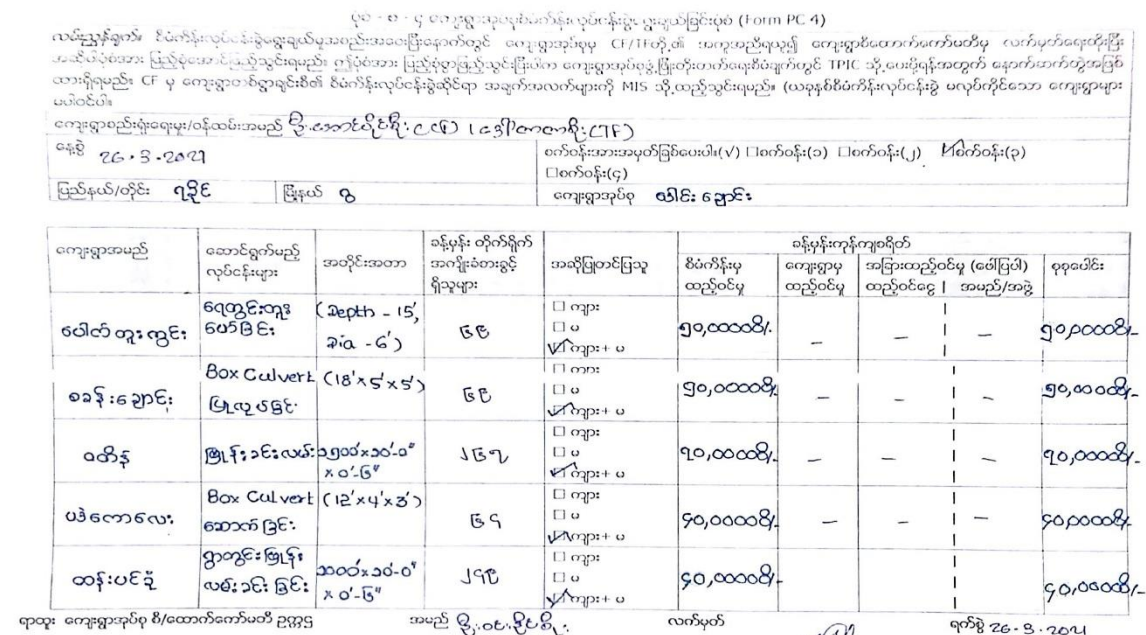 ပုံစံ - စ - ၄ ကျေးရွာအုပ်စုစီမံကိန်းလုပ်ငန်းခွဲရွေးချယ်ခြင်းပုံစံ (Form PC 4)
လမ်းညွှန်ချက်။ စီမံကိန်းလုပ်ငန်းခွဲရွေးချယ်မှုအစည်းအဝေးပြီးနောက်တွင် ကျေးရွာအုပ်စုမှ CF/TFတို့၏ အကူအညီရယူ၍ ကျေးရွာစီထောက်ကော်မတီမှ လက်မှတ်ရေးထိုးပြီး
အဆိုပါပုံစံအား ပြည့်စုံအောင်ဖြည့်သွင်းရမည်။ ဤပုံစံအား ပြည့်စုံစွာဖြည့်သွင်းပြီးပါက ကျေးရွာအုပ်စုဖွံ့ဖြိုးတိုးတက်ရေးစီမံချက်တွင် TPIC သို့ပေးပို့ရန်အတွက် နောက်ဆက်တွဲအဖြစ်
ထားရှိရမည်။ CF မှ ကျေးရွာတစ်ရွာချင်းစီ၏ စီမံကိန်းလုပ်ငန်းခွဲဆိုင်ရာ အချက်အလက်များကို MIS သို့ထည့်သွင်းရမည်။ (ယခုနှစ်စီမံကိန်းလုပ်ငန်းခွဲ မလုပ်ကိုင်သော ကျေးရွာများ
မပါဝင်ပါ။
ကျေးရွာစည်းရုံးရေးမှူး/ဝန်ထမ်းအမည် ဦးအောင်ပိုင်စိုး (CF) ၊ ဒေါ်တာတာစိုး (TF)
နေ့စွဲ 26.3.2021 စက်ဝန်းအားအမှတ်ခြစ်ပေးပါ။(√) □စက်ဝန်း(၁) □စက်ဝန်း(၂) ☑စက်ဝန်း(၃)
□စက်ဝန်း(၄)
ပြည်နယ်/တိုင်း ရခိုင် မြို့နယ် ဂွ ကျေးရွာအုပ်စု ချောင်း
ကျေးရွာအမည် ဆောင်ရွက်မည့်လုပ်ငန်းများ အတိုင်းအတာ ခန့်မှန်း တိုက်ရိုက်အကျိုးခံစားခွင့်ရှိသူများ အဆိုပြုတင်ပြသူ ခန့်မှန်းကုန်ကျစရိတ်
စီမံကိန်းမှ ထည့်ဝင်မှု ကျေးရွာမှ ထည့်ဝင်မှု အခြားထည့်ဝင်မှု (ဖော်ပြပါ) ထည့်ဝင်ငွေ | အမည်/အဖွဲ့ စုစုပေါင်း
ပေါက်တူးကွင်း ရေတွင်းတူးဖော်ခြင်း (Depth - 15', Dia - 6') ၆၉ □ ကျား □ မ ☑ ကျား+ မ ၅၀,၀၀၀၀၀ိ/- – – – ၅၀,၀၀၀၀ိ/-
စခန်းချောင်း Box Culvert ပြုလုပ်ခြင်း (18'x5'x5') ၆၉ □ ကျား □ မ ☑ ကျား+ မ ၅၀,၀၀၀၀ိ/- – – – ၅၀,၀၀၀၀ိ/-
ဝတိန မြို့န်းခင်းလမ်း ၁၅၀၀'x၁၀'-၀" x ၀'-၆" ၂၆၇ □ ကျား □ မ ☑ ကျား+ မ ၇၀,၀၀၀၀ိ/- – – – ၇၀,၀၀၀၀ိ/-
ပဒဲကောလေး Box Culvert ဆောက်ခြင်း (12'x4'x3') ၆၄ □ ကျား □ မ ☑ ကျား+ မ ၄၀,၀၀၀၀ိ/- – – – ၄၀,၀၀၀၀ိ/-
ထန်းပင်ခုံ ရွာတွင်းမြို့န်းလမ်းခင်းခြင်း ၁၀၀၀'x၁၀'-၀" x ၀'-၆" ၂၄၉ □ ကျား □ မ ☑ ကျား+ မ ၄၀,၀၀၀၀ိ/- ၄၀,၀၀၀၀ိ/-
ရာထူး ကျေးရွာအုပ်စု စီ/ထောက်ကော်မတီ ဥက္ကဌ အမည် ဦးဝင်းနိုင်စိုး လက်မှတ် ရက်စွဲ 26.3.2021